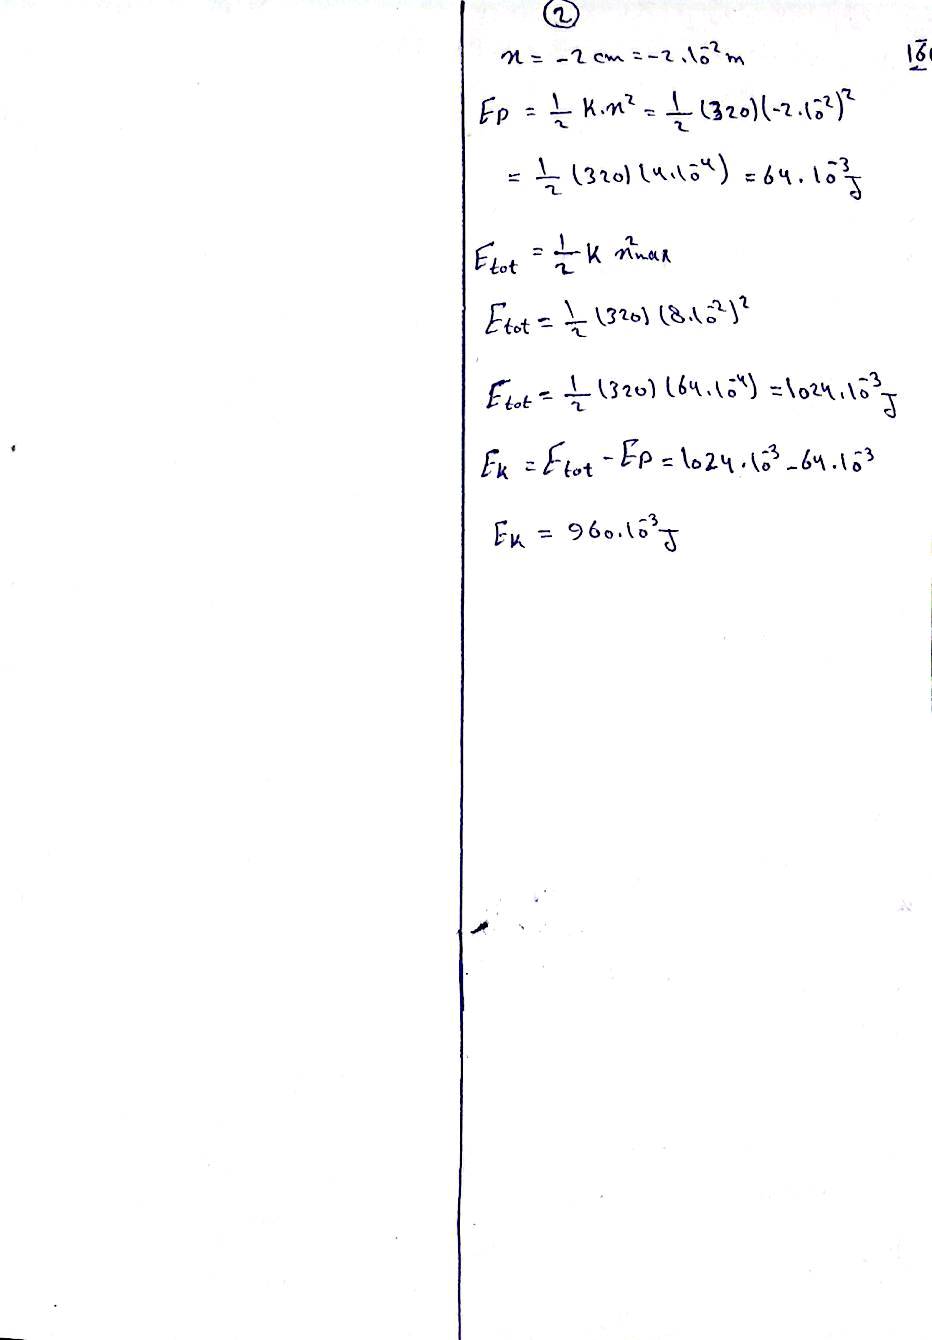 2
x = -2 cm = -2.10⁻² m
Ep = 1/2 K.x² = 1/2 (320)(-2.10⁻²)²
= 1/2 (320)(4.10⁻⁴) = 64.10⁻³ J
Etot = 1/2 K x²max
Etot = 1/2 (320)(8.10⁻²)²
Etot = 1/2 (320)(64.10⁻⁴) = 1024.10⁻³ J
Ek = Etot - Ep = 1024.10⁻³ - 64.10⁻³
Ek = 960.10⁻³ J